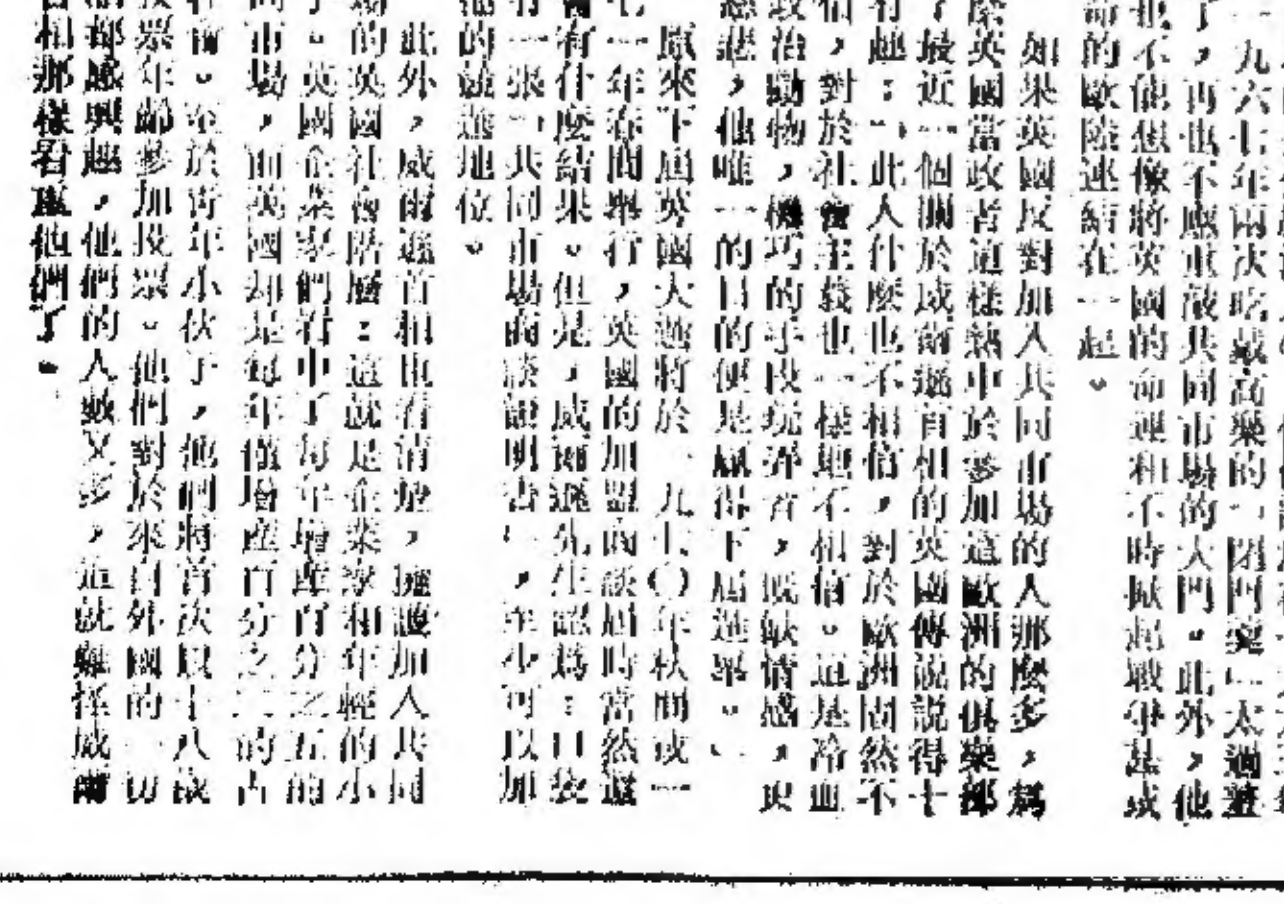 一九六七年兩次吃戴高樂的「閉門羹」太過難
了，再也不應重敲共同市場的大門。此外，他
也不能想像將英國的命運和不時掀起戰爭甚或
命的歐陸連結在一起。
如果英國反對加入共同市場的人那麼多，爲
英國當政者這樣熱中於參加這歐洲的俱樂部
了最近一個關於威爾遜首相的英國傳説説得十
有趣：「此人什麼也不相信，對於歐洲固然不
信，對於社會主義也一樣地不相信。這是冷血
政治動物，機巧的手段玩弄者，既缺情感，更
慈悲，他唯一的目的便是贏得下屆選舉。」
原來下屆英國大選將於一九七〇年秋間或一
七一年春間舉行，英國的加盟商談屆時當然還
會有什麼結果。但是，威爾遜先生認爲：口袋
有一張「共同市場商談證明書」，至少可以加
他的競選地位。
此外，威爾遜首相也看清楚，擁護加入共同
場的英國社會階層：這就是企業家和年輕的小
子。英國企業家們看中了每年增產百分之五的
同市場，而英國却是每年僅增產百分之二的古
會。至於青年小伙子，他們將首次以十八歲
投票年齡參加投票。他們對於來自外國的一切
都感興趣，他們的人數又多，這就難怪威爾
首相那樣看重他們了。